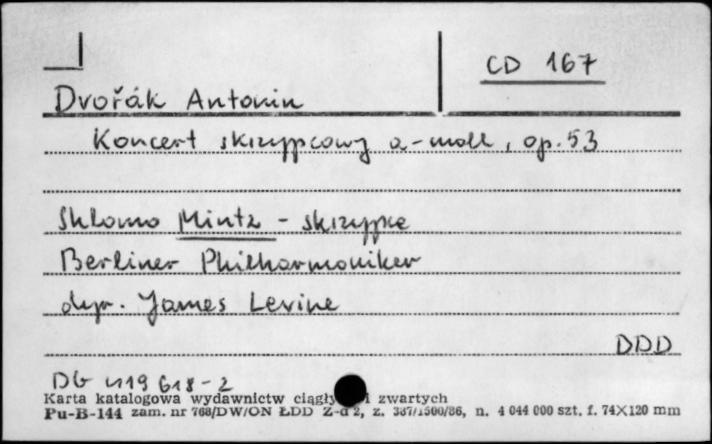 CD 167
Dvořák Antonin
Koncert skrzypcowy a-moll, op. 53
Shlomo Mintz - skrzypce
Berliner Philharmoniker
dyr. James Levine
DDD
DG 419 618-2
Karta katalogowa wydawnictw ciągły i zwartych
Pu-B-144 zam. nr 768/DW/ON ŁDD Z-d 2, z. 387/1500/86, n. 4 044 000 szt. f. 74X120 mm